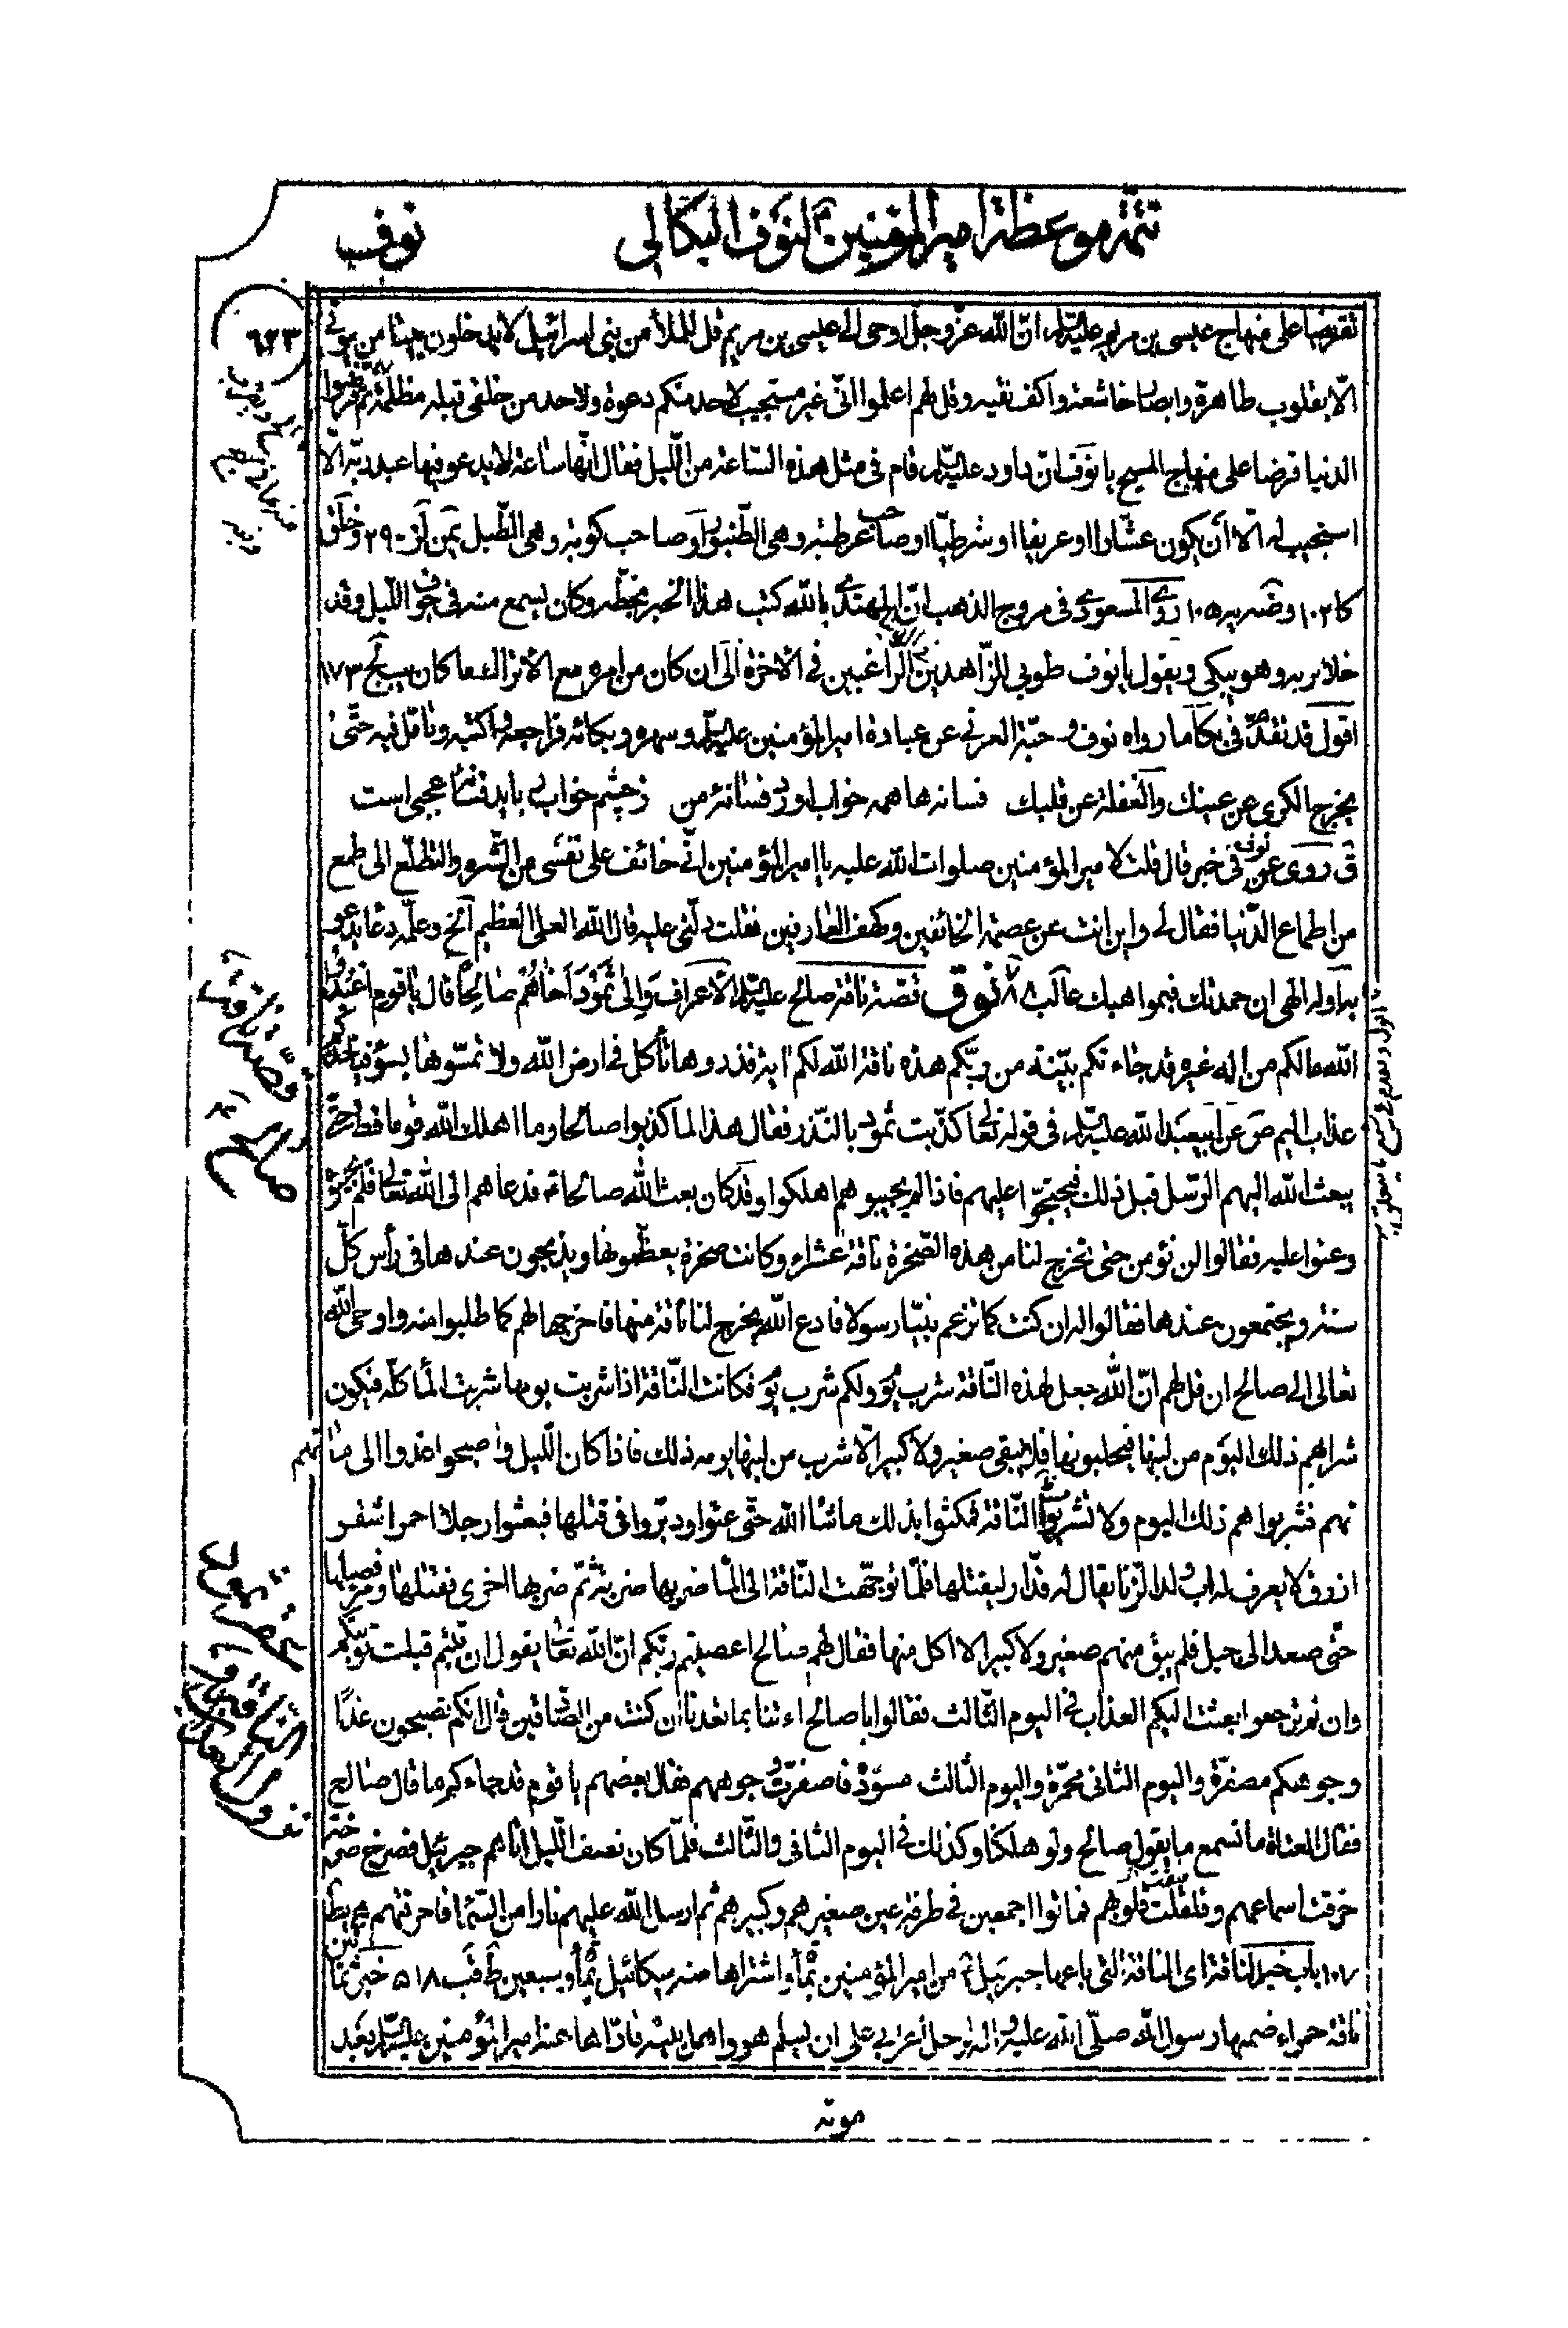 تتمّة موعظة امير المؤمنين لنوف البكالي
نوف
٦٢٣
تقريضا على منهاج عيسى بن مريم عليه السّلام، انّ الله عزّ وجلّ اوحى الى عيسى بن مريم قل للملأ من بني اسرائيل لا يدخلون بيتا من بيوتي
الّا بقلوب طاهرة وابصار خاشعة واكف نقيه وقل لهم اعلموا انّى غير مستجيب لاحد منكم دعوة ولاحد من خلقى قبله مظلمة ثم قرضوا
الدنيا قرضا على منهاج المسيح يا نوف ان داود عليه السّلام قام فى مثل هذه السّاعة من اللّيل فقال انّها ساعة لا يدعو فيها عبد ربّه الّا
استجيب له الّا أن يكون عشّارا او عريفا او شرطيّا او صاحب عرطبة وهى الطّنبور او صاحب كوبة وهى الطّبل يمن لز ٢٩٠ وخلق
كا ١٠٢ وضه يد ١٠٥ روى المسعودى فى مروج الذهب انّ المهتدى بالله كتب هذا الخبر بخطّه وكان يسمع منه فى جوف اللّيل وقد
خلا بربه وهو يبكى ويقول يا نوف طوبى للزّاهدين الرّاغبين فى الاخرة الى ان كان من امره مع الاتراك ما كان يب لج ١٧٣
اقول قد تقدّم فى بكا ما رواه نوف و حبّة العرنى عن عبادة امير المؤمنين عليه السّلام وسهره وبكائه فراجعه و اكتبه وتأمّل فيه حتّى
يخرج الكرى عن عينك والغفلة عن قلبك فسانه ها همه خواب آورد فسانه من زچشم خواب ربايد فسانه عجبى است
ق روى عن نوف فى خبر قال قلت لامير المؤمنين صلوات الله عليه يا امير المؤمنين انّى خائف على نفسى من الشّره والتطلّع الى طمع
من اطماع الدّنيا فقال لى واين انت عن عصمة الخائفين وكهف العارفين فقلت دلّنى عليه قال الله العلى العظيم الخ وعلّمه دعا يدعو
به اوله الهى ان حمدتك فبمواهبك عا لب ٨٨ نوق قصّة ناقة صالح عليه السّلام الأعراف وَالى ثَمُودَ اَخاهُم صالِحاً قال يا قوم اعبدوا
الله ما لكم من إله غيره قد جاءتكم بيّنة من ربّكم هذه ناقة الله لكم اية فذروها تأكل فى ارض الله ولا تمسّوها بسؤ فيأخذكم
عذاب اليم ص عن ابيعبد الله عليه السّلام، فى قوله تعا كذّبت ثمود بالنّذر فقال هذا لما كذبوا صالحا وما اهلك الله قوما قط حتّى
يبعث الله اليهم الرّسل قبل ذلك فيحتجّوا عليهم فاذا لم يجيبوهم اهلكوا وقد كان بعث الله صالحا فدعاهم الى الله تعالى فلم يجيبوه
وعتوا عليه فقالوا لن نؤمن حتى تخرج لنا من هذه الصّخرة ناقة عشراء وكانت صخرة يعظّمونها ويذبحون عندها فى رأس كلّ
سنة ويجتمعون عندها فقالوا له ان كنت كما تزعم نبيّا رسولا فادع الله يخرج لنا ناقة منها فاخرجها لهم كما طلبوا منه واوحى الله
تعالى الى صالح ان قل لهم انّ الله جعل لهذه النّاقة شرب يوم ولكم شرب يوم فكانت النّاقة اذا شربت يومها شربت الماء كلّه فيكون
شرابهم ذلك اليوم من لبنها فيحلبونها فلا يبقى صغير ولا كبير الّا شرب من لبنها يومه ذلك فاذا كان اللّيل واصبحوا غدوا الى مائهم
فشربوا هم ذلك اليوم ولا تشرب النّاقة فمكثوا بذلك ما شاء الله حتّى عتوا ودبّروا فى قتلها فبعثوا رجلا احمر اشقر
ازرق لا يعرف له اب ولد الزّنا يقال له قدّار ليقتلها فلمّا توجّهت النّاقة الى الماء ضربها ضربة ثمّ ضربها اخرى فقتلها ومرّ فصيلها
حتّى صعد الى جبل فلم يبق منهم صغير ولا كبير الا اكل منها فقال لهم صالح اعصيتم ربّكم انّ الله تعا يقول ان تبتم قبلت توبتكم
وان لم ترجعوا بعثت اليكم العذاب فى اليوم الثّالث فقالوا يا صالح اءتنا بما تعدنا ان كنت من الصّادقين قال انكم تصبحون غدًا
وجوهكم مصفرّة واليوم الثانى محمّرة واليوم الثالث مسوّدة فاصفرّت وجوههم فقال بعضهم يا قوم قد جاءكم ما قال صالح
فقال العتاة ما نسمع ما يقول صالح ولو هلكنا وكذلك فى اليوم الثانى والثّالث فلمّا كان نصف اللّيل اتاهم جبرئيل فصرخ صرخة
خرقت اسماعهم وفلقت قلوبهم فماتوا اجمعين فى طرفة عين صغيرهم وكبيرهم ثم ارسل الله عليهم نارا من السّماء فاحرقتهم
باب خبر الناقة اى الناقة التى باعها جبرئيل من امير المؤمنين بمأة واشتراها منه ميكائيل بمأة وسبعين ط قب ٥١٨ خبر ثمانين
ناقة حمراء ضمنها رسول الله صلّى الله عليه واله لرجل أعرابى على ان يسلم هو واهل بيته فادّاها عنه امير المؤمنين عليه السّلام بعد
موته
قصّة ناقة
صالح
عقر ثمود
الناقة